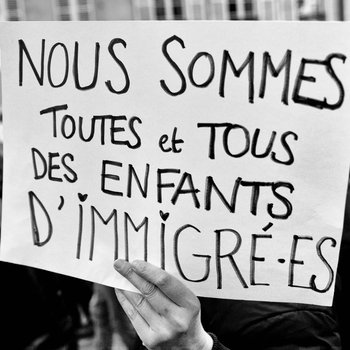 NOUS SOMMES
TOUTES et TOUS
DES ENFANTS
D'iMMiGRÉ·ES